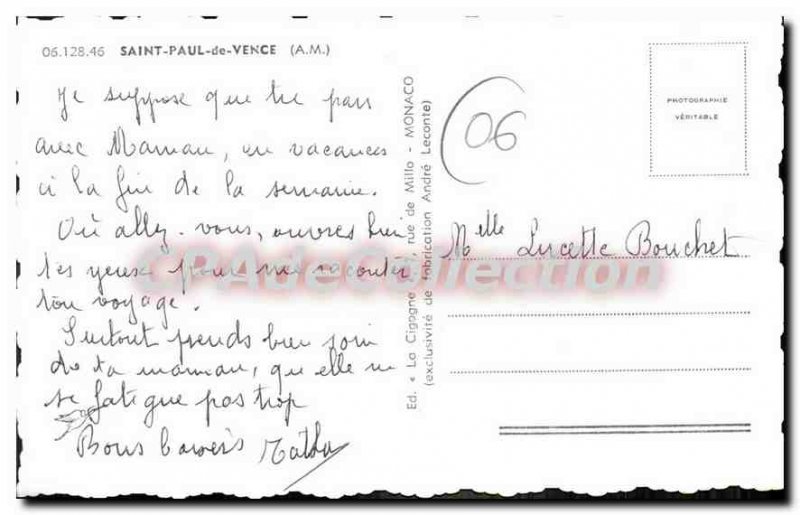 06.128.46 SAINT-PAUL-de-VENCE (A.M.)
Je suppose que tu pars
avec Maman, en vacances
à la fin de la semaine.
Où allez-vous, ouvres bien
tes yeux pour me raconter
ton voyage.
Surtout prends bien soin
de ta maman, qu'elle ne
se fatigue pas trop
Bons baisers
Ed. « La Cigogne », rue de Millo - MONACO
(exclusivité de fabrication André Leconte)
06
PHOTOGRAPHIE
VÉRITABLE
Melle Lucette Bouchet
CPAdeCollection